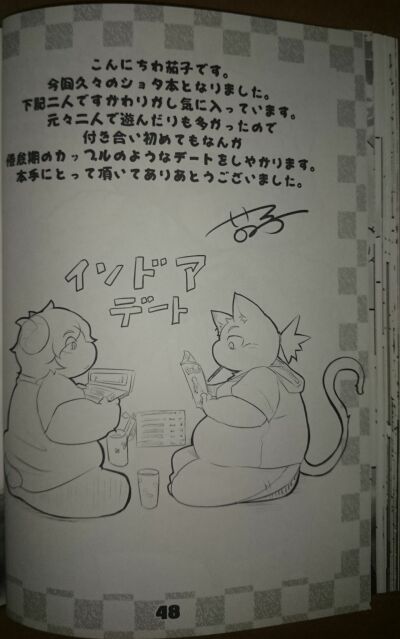 こんにちわ茄子です。
今回久々のショタ本となりました。
下記二人ですかわりかし気に入っています。
元々二人で遊んだりも多かったので
付き合い初めてもなんか
倦怠期のカップルのようなデートをしやがります。
本手にとって頂いてありあとうございました。
茄子
インドア
デート
48